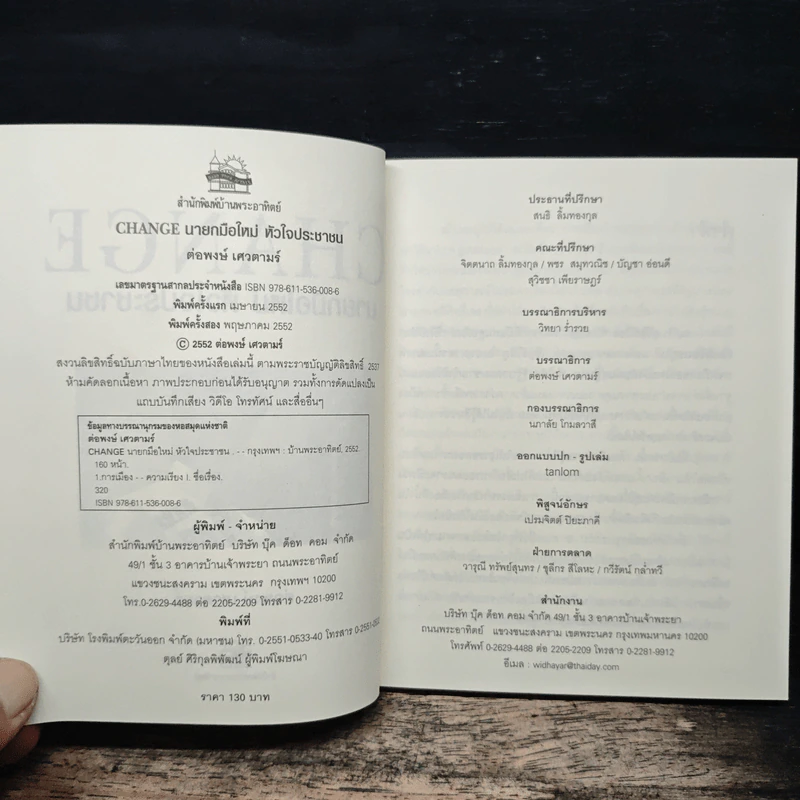 สำนักพิมพ์บ้านพระอาทิตย์
CHANGE นายกมือใหม่ หัวใจประชาชน
ต่อพงษ์ เศวตามร์
เลขมาตรฐานสากลประจำหนังสือ ISBN 978-611-536-008-6
พิมพ์ครั้งแรก เมษายน 2552
พิมพ์ครั้งสอง พฤษภาคม 2552
© 2552 ต่อพงษ์ เศวตามร์
สงวนลิขสิทธิ์ฉบับภาษาไทยของหนังสือเล่มนี้ ตามพระราชบัญญัติลิขสิทธิ์ 2537
ห้ามคัดลอกเนื้อหา ภาพประกอบก่อนได้รับอนุญาต รวมทั้งการดัดแปลงเป็น
แถบบันทึกเสียง วิดีโอ โทรทัศน์ และสื่ออื่นๆ
ข้อมูลทางบรรณานุกรมของหอสมุดแห่งชาติ
ต่อพงษ์ เศวตามร์
CHANGE นายกมือใหม่ หัวใจประชาชน . - - กรุงเทพฯ : บ้านพระอาทิตย์, 2552.
160 หน้า.
1.การเมือง - - ความเรียง I. ชื่อเรื่อง.
320
ISBN 978-611-536-008-6
ผู้พิมพ์ - จำหน่าย
สำนักพิมพ์บ้านพระอาทิตย์ บริษัท บุ๊ค ด็อท คอม จำกัด
49/1 ชั้น 3 อาคารบ้านเจ้าพระยา ถนนพระอาทิตย์
แขวงชนะสงคราม เขตพระนคร กรุงเทพฯ 10200
โทร.0-2629-4488 ต่อ 2205-2209 โทรสาร 0-2281-9912
พิมพ์ที่
บริษัท โรงพิมพ์ตะวันออก จำกัด (มหาชน) โทร. 0-2551-0533-40 โทรสาร
ตุลย์ ศิริกุลพิพัฒน์ ผู้พิมพ์โฆษณา
ราคา 130 บาท
ประธานที่ปรึกษา
สนธิ ลิ้มทองกุล
คณะที่ปรึกษา
จิตตนาถ ลิ้มทองกุล / พชร สมุทวณิช / บัญชา อ่อนดี
สุวิชชา เพียราษฎร์
บรรณาธิการบริหาร
วิทยา ร่ำรวย
บรรณาธิการ
ต่อพงษ์ เศวตามร์
กองบรรณาธิการ
นภาลัย โกมลวาสี
ออกแบบปก - รูปเล่ม
tanlom
พิสูจน์อักษร
เปรมจิตต์ ปิยะภาคี
ฝ่ายการตลาด
วารุณี ทรัพย์สุนทร / ชุลีกร สีโลหะ / กวีรัตน์ กล่ำทวี
สำนักงาน
บริษัท บุ๊ค ด็อท คอม จำกัด 49/1 ชั้น 3 อาคารบ้านเจ้าพระยา
ถนนพระอาทิตย์ แขวงชนะสงคราม เขตพระนคร กรุงเทพมหานคร 10200
โทรศัพท์ 0-2629-4488 ต่อ 2205-2209 โทรสาร 0-2281-9912
อีเมล : widhayar@thaiday.com